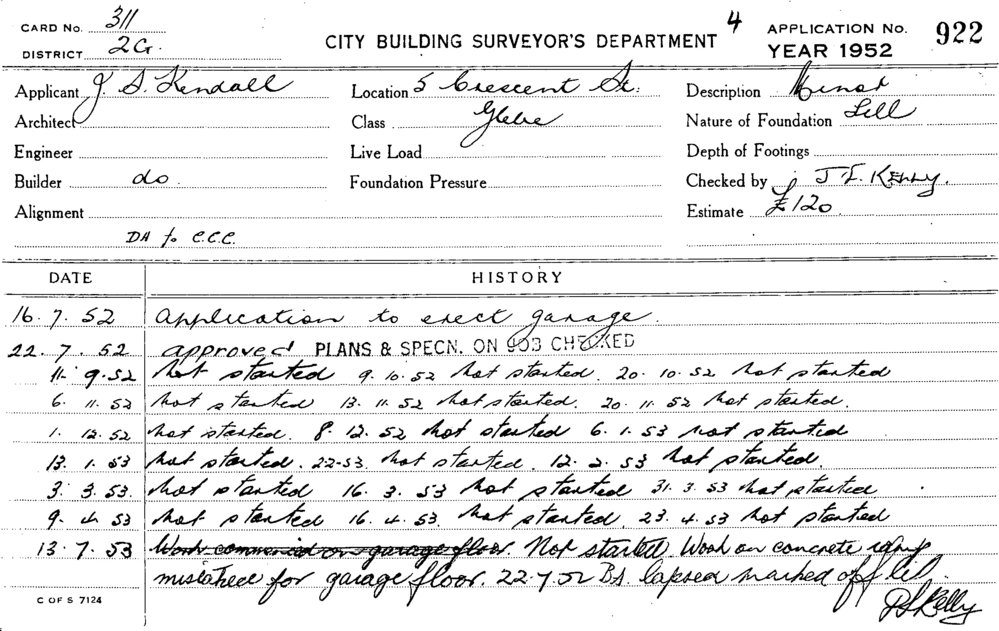 CARD No. 311
DISTRICT 2G.
CITY BUILDING SURVEYOR'S DEPARTMENT 4
APPLICATION No. 922
YEAR 1952
Applicant J. S. Kendall Location 5 Crescent St. Description Minor
Architect Class Glebe Nature of Foundation Fill
Engineer Live Load Depth of Footings
Builder do. Foundation Pressure Checked by J. L. Kelly.
Alignment Estimate £120
DA to C.C.C.
DATE HISTORY
16.7.52 Application to erect garage.
22.7.52 approved PLANS & SPECN. ON JOB CHECKED
11.9.52 Not started 9.10.52 Not started. 20.10.52 Not started
6.11.52 Not started 13.11.52 Not started. 20.11.52 Not started.
1.12.52 Not started. 8.12.52 Not started 6.1.53 Not started
13.1.53 Not started. 2.2.53. Not started. 12.2.53 Not started.
3.3.53. Not started 16.3.53 Not started 31.3.53 Not started
9.4.53 Not started 16.4.53. Not started. 23.4.53 Not started
13.7.53 Work commenced on garage floor. Not started. Work on concrete ramp
mistaken for garage floor. 22.7.52 BA lapsed marked off
Kelly
C OF S 7124